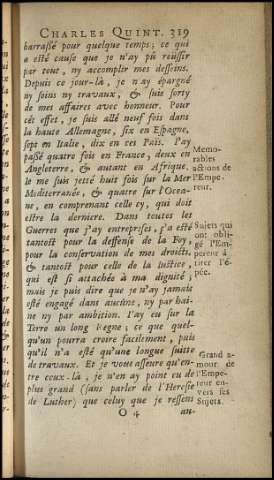 CHARLES QUINT. 319
barrassé pour quelque temps; ce qui
a esté cause que je n'ay pû reüssir
par tout, ny accomplir mes desseins.
Depuis ce jour-là, je n'ay épargné
ny soins ny travaux, & suis sorty
de mes affaires avec honneur. Pour
cét effet, je suis allé neuf fois dans
la haute Allemagne, six en Espagne,
sept en Italie, dix en ces Païs. J'ay
passé quatre fois en France, deux en
Angleterre, & autant en Afrique.
Je me suis jetté huit fois sur la Mer
Mediterranée, & quatre sur l'Ocea-
ne, en comprenant celle cy, qui doit
estre la derniere. Dans toutes les
Guerres que j'ay entreprses, j'a esté
tantost pour la deffense de la Foy,
pour la conservation de mes droicts,
& tantost pour celle de la Iustice,
qui est si attachée à ma dignité;
mais je puis dire que je n'ay jamais
esté engagé dans aucune, ny par hai-
ne ny par ambition. J'ay eu sur la
Terre un long Regne; ce que quel-
qu'un pourra croire facilement, puis
qu'il n'a esté qu'une longue suitte
de travaux. Et je vous asseure qu'en-
tre ceux-là, je n'en ay point eu de
plus grand (sans parler de l'Heresie
de Luther) que celuy que je ressens
O 4 au-
Memo-
rables
actions de
l'Empe-
reur.
Sujets qui
ont obli-
gé l'Em-
pereur à
tirer l'é-
pée.
Grand a-
mour de
l'Empe-
reur en-
vers ses
Sujets.